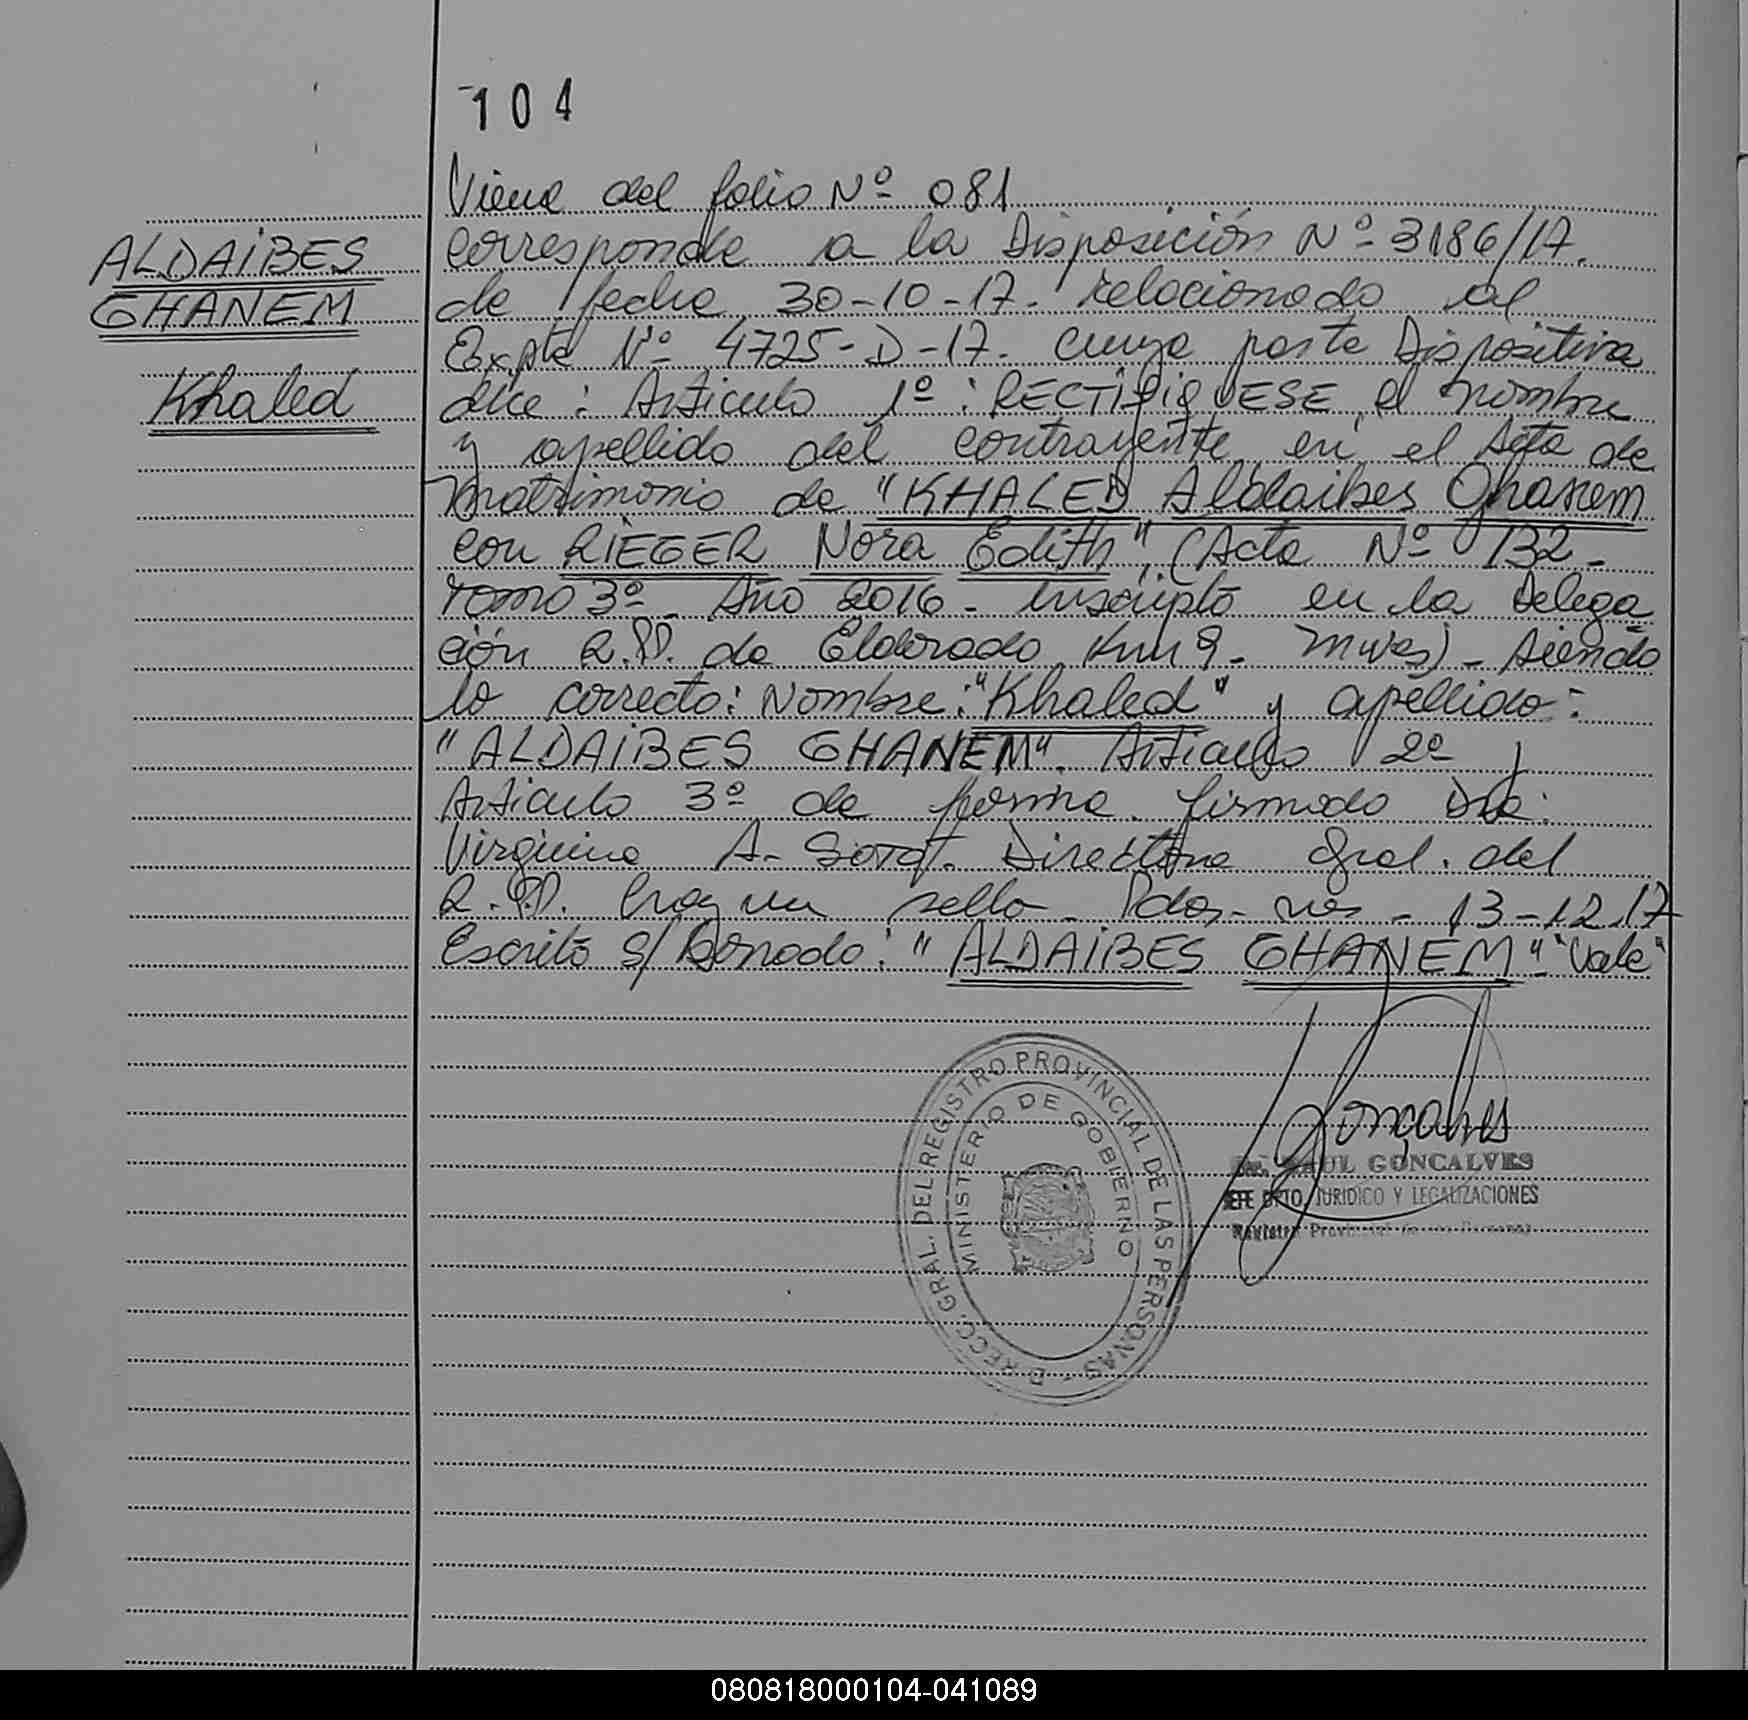 104
Viene del folio Nº 081
ALDAIBES
GHANEM
Khaled
corresponde a la Disposición Nº 3186/17.
de fecha 30-10-17. relacionado al
Expte Nº 4725-D-17. cuya parte Dispositiva
dice: Articulo 1º: RECTIFIQUESE el nombre
y apellido del contrayente en el Acta de
Matrimonio de "KHALED Aldaibes Ghanem
con RIEGER Nora Edith", (Acta Nº 132-
Tomo 3º- Año 2016- Inscripto en la Delega
ción R.P.P. de Eldorado, Km 9- Mnes)- siendo
lo correcto: Nombre: "Khaled" y apellido:
"ALDAIBES GHANEM". Articulo 2º y
Articulo 3º de forma. firmado Dra:
Virginia A. Directora Gral. del
R.P.P. hay un sello- Pdas- - 13-12.17
Escrito s/ Borrado: "ALDAIBES GHANEM" "Vale"
DIRECC. GRAL. DEL REGISTRO PROVINCIAL DE LAS PERSONAS
MINISTERIO DE GOBIERNO
Gonçalves
RAUL GONCALVES
JEFE DPTO. JURIDICO Y LEGALIZACIONES
Registro Provincial de las Personas
080818000104-041089